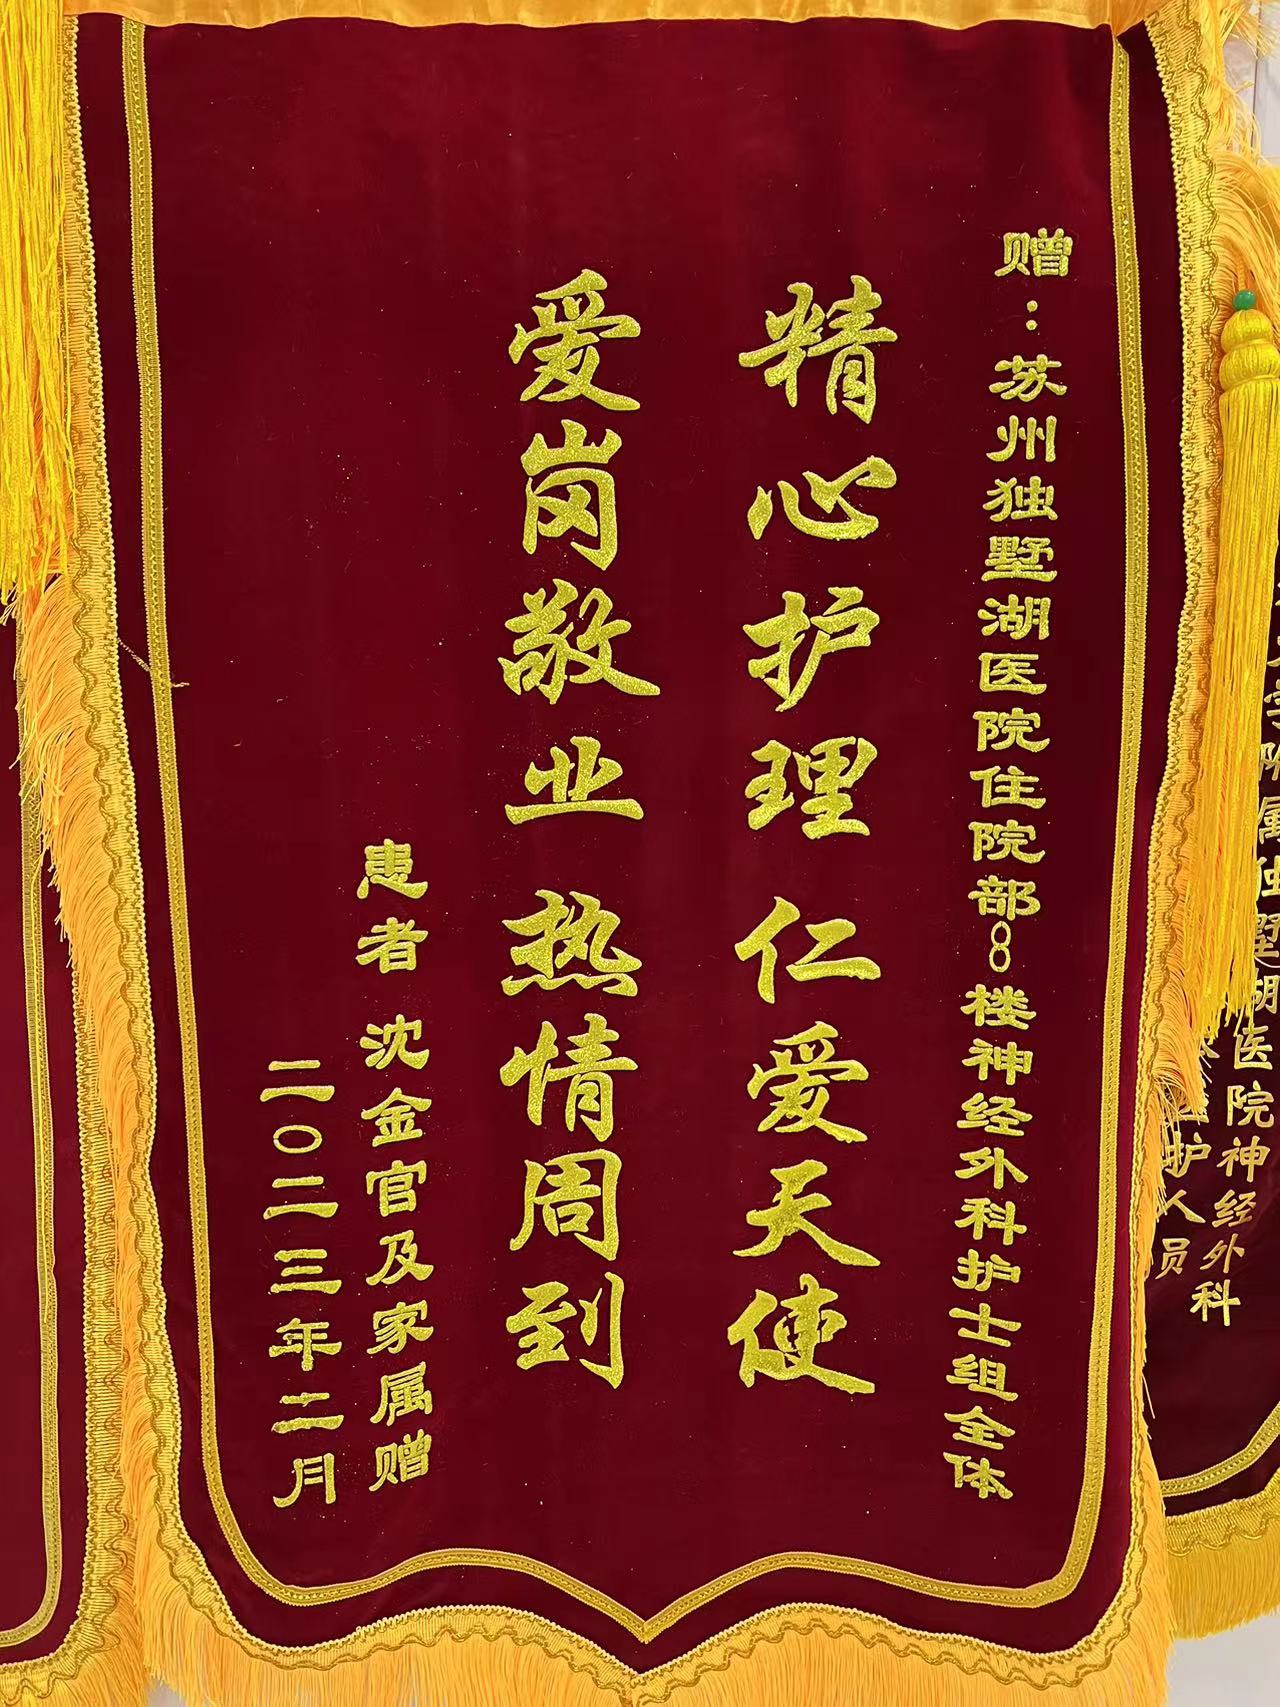 赠：苏州独墅湖医院住院部8楼神经外科护士组全体
精心护理 仁爱天使
爱岗敬业 热情周到
患者 沈金官及家属赠
二〇二三年二月
学附属独墅湖医院神经外科
护人员